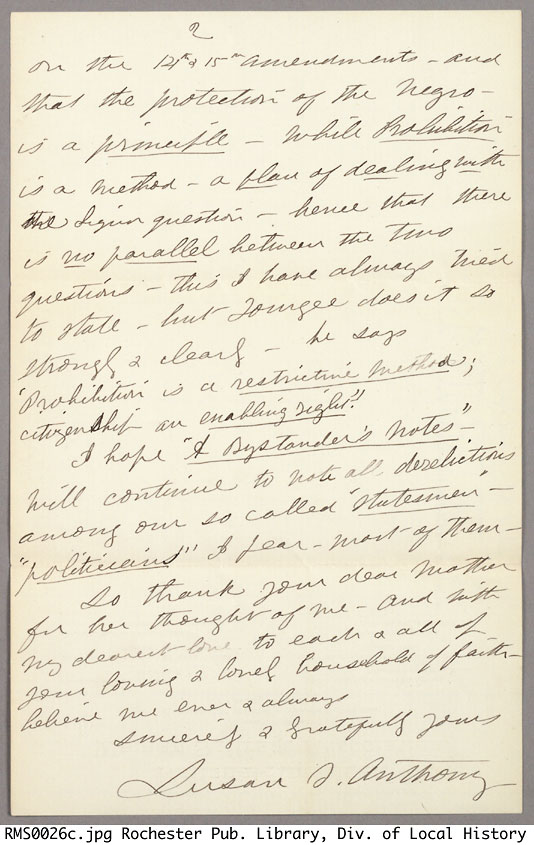 2
on the 14th & 15th amendments - and
that the protection of the Negro -
is a principle - While Prohibition
is a method - a plan of dealing with
the liquor question - hence that there
is no parallel between the two
questions - this I have always tried
to state - but Tourgee does it so
strongly & clearly - he says
"Prohibition is a restrictive method;
citizenship an enabling right"!
I hope "A Bystander's Notes" -
will continue to note all derelictions
among our so called "statesmen" -
"politicians" I fear - most of them -
So thank your dear Mother
for her thought of me - and with
my dearest love to each & all of
your loving & lovely household of faith -
believe me ever & always
sincerely & gratefully yours
Susan B. Anthony
RMS0026c.jpg Rochester Pub. Library, Div. of Local History